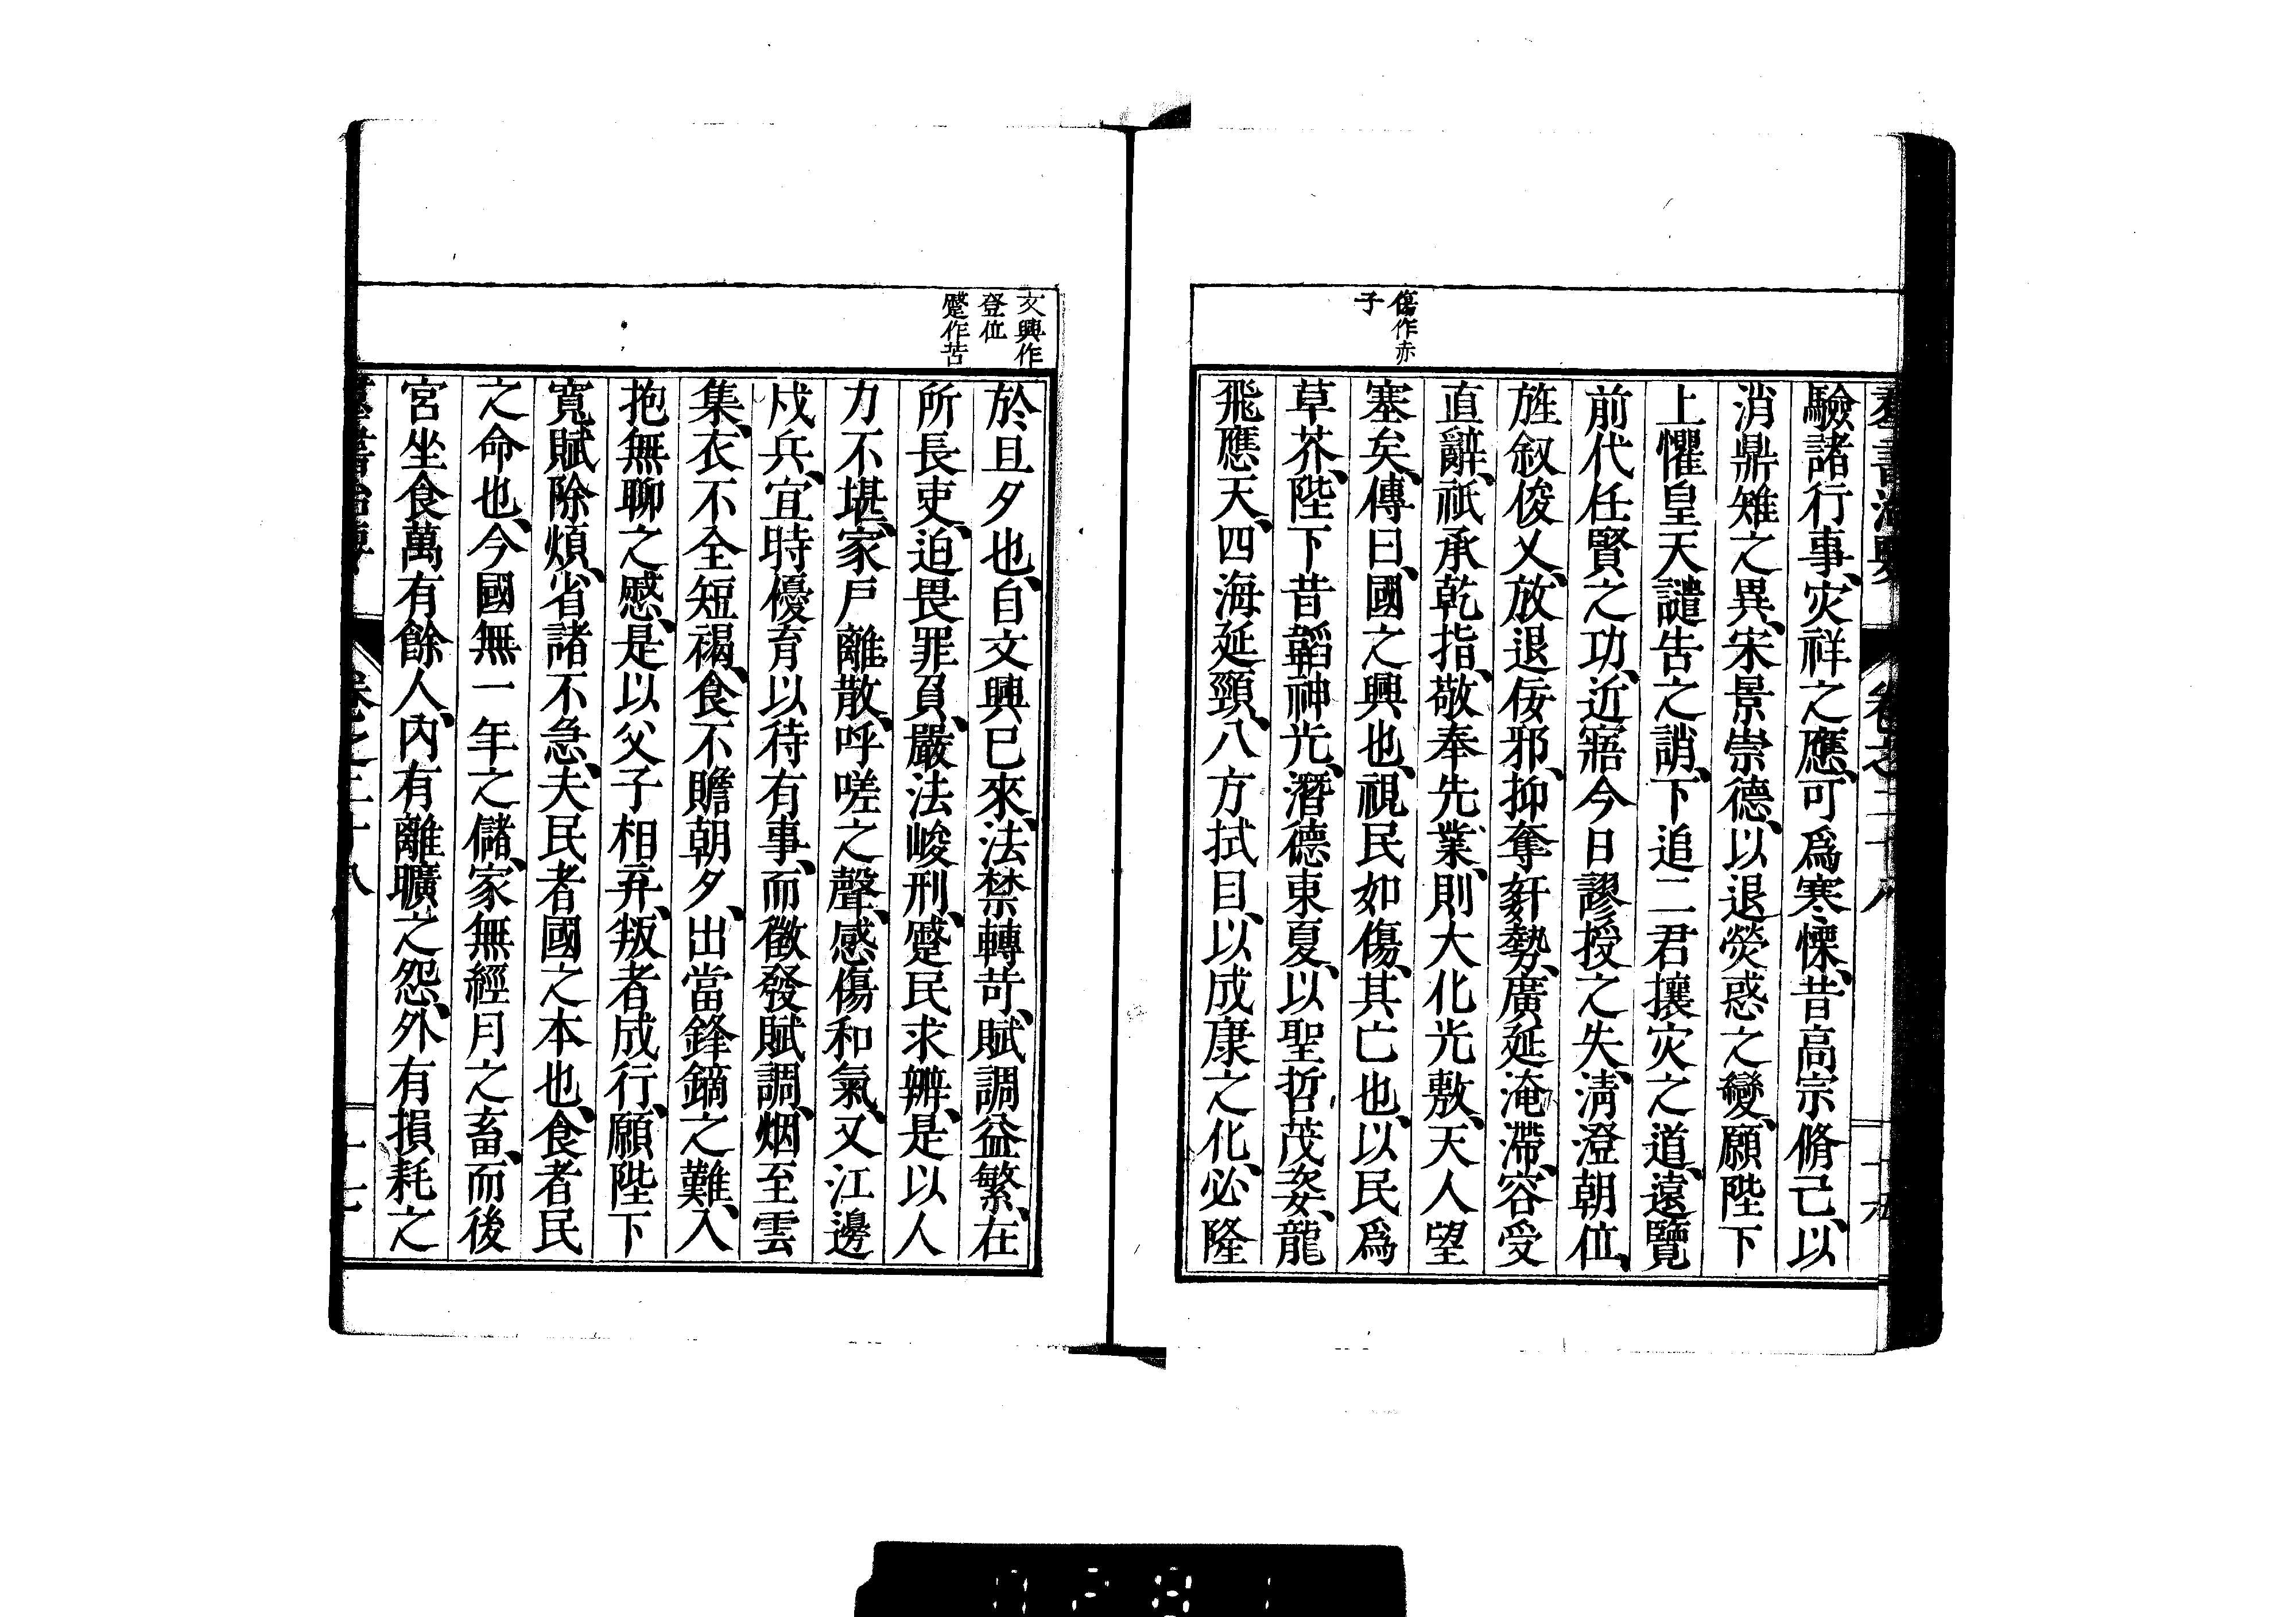 傷作赤
子
驗諸行事、灾祥之應、可爲寒慄、昔高宗脩己、以
消鼎雉之異、宋景崇德、以退熒惑之變、願陛下
上懼皇天譴告之誚、下追二君攘灾之道、遠覽
前代任賢之功、近寤今日謬授之失、淸澄朝位、
旌叙俊乂、放退佞邪、抑奪姧勢、廣延淹滯、容受
直辭、祇承乾指、敬奉先業、則大化光敷、天人望
塞矣、傳曰、國之興也、視民如傷、其亡也、以民爲
草芥、陛下昔韜神光、潛德東夏、以聖哲茂姿、龍
飛應天、四海延頸、八方拭目、以成康之化、必隆
文興作
登位
蹙作苦
於旦夕也、自文興已來、法禁轉苛、賦調益繁、在
所長吏、迫畏罪負、嚴法峻刑、蹙民求辨、是以人
力不堪、家戶離散、呼嗟之聲、感傷和氣、又江邊
戍兵、宜時優育以待有事、而徵發賦調、烟至雲
集、衣不全短褐、食不贍朝夕、出當鋒鏑之難、入
抱無聊之慼、是以父子相弃、叛者成行、願陛下
寬賦除煩、省諸不急、夫民者國之本也、食者民
之命也、今國無一年之儲、家無經月之畜、而後
宮坐食萬有餘人、內有離曠之怨、外有損耗之